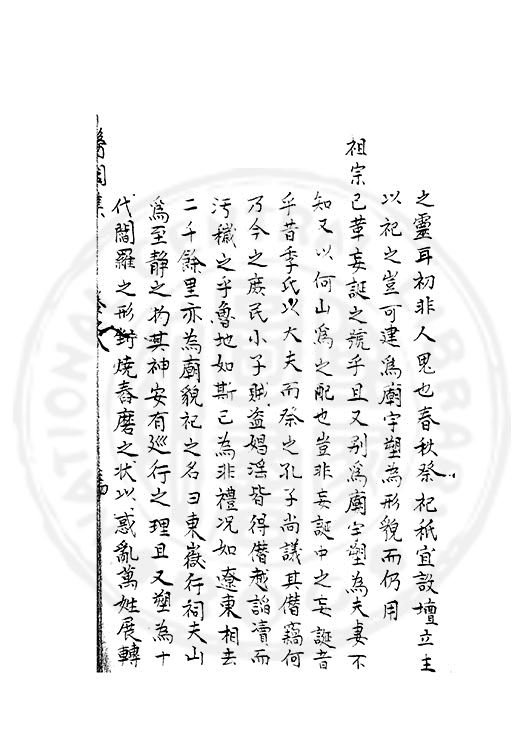 之靈耳初非人鬼也春秋祭祀秪宜設壇立主
以祀之豈可建爲廟宇塑為形貌而仍用
祖宗已革妄誕之號乎且又别爲廟宇塑為夫妻不
知又以何山爲之配也豈非妄誕中之妄誕者
乎昔季氏以大夫而祭之孔子尚議其僭竊何
乃今之庶民小子賊盗娼滛皆得僭越謟瀆而
汚穢之乎魯地如斯已為非禮况如遼東相去
二千餘里亦為廟貌祀之名曰東嶽行祠夫山
爲至静之物其神安有廵行之理且又塑為十
代閻羅之形剉燒舂磨之状以惑亂萬姓展轉
集